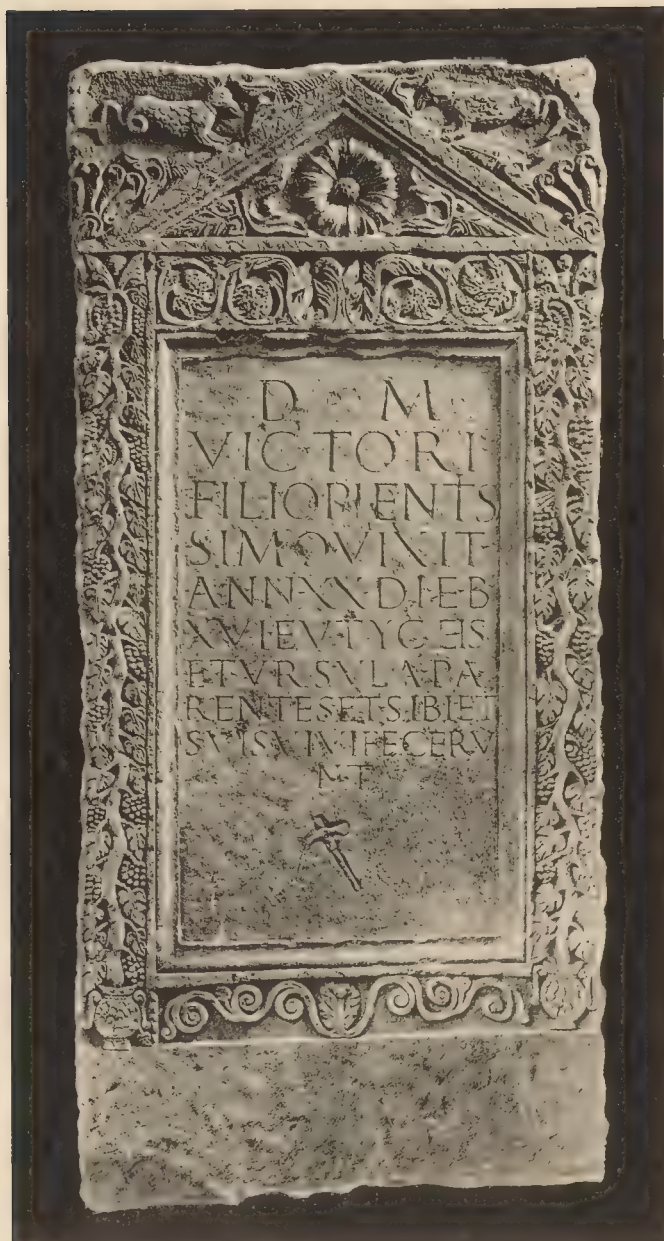 D M
VICTORI
FILIOPIENTS
SIMOVIXIT
ANN·XX·DIEB
XVIEVTYCEIS
ET·VRSVLA·PA
RENTESETSIBIET
SVISVIVIFECERV
NT